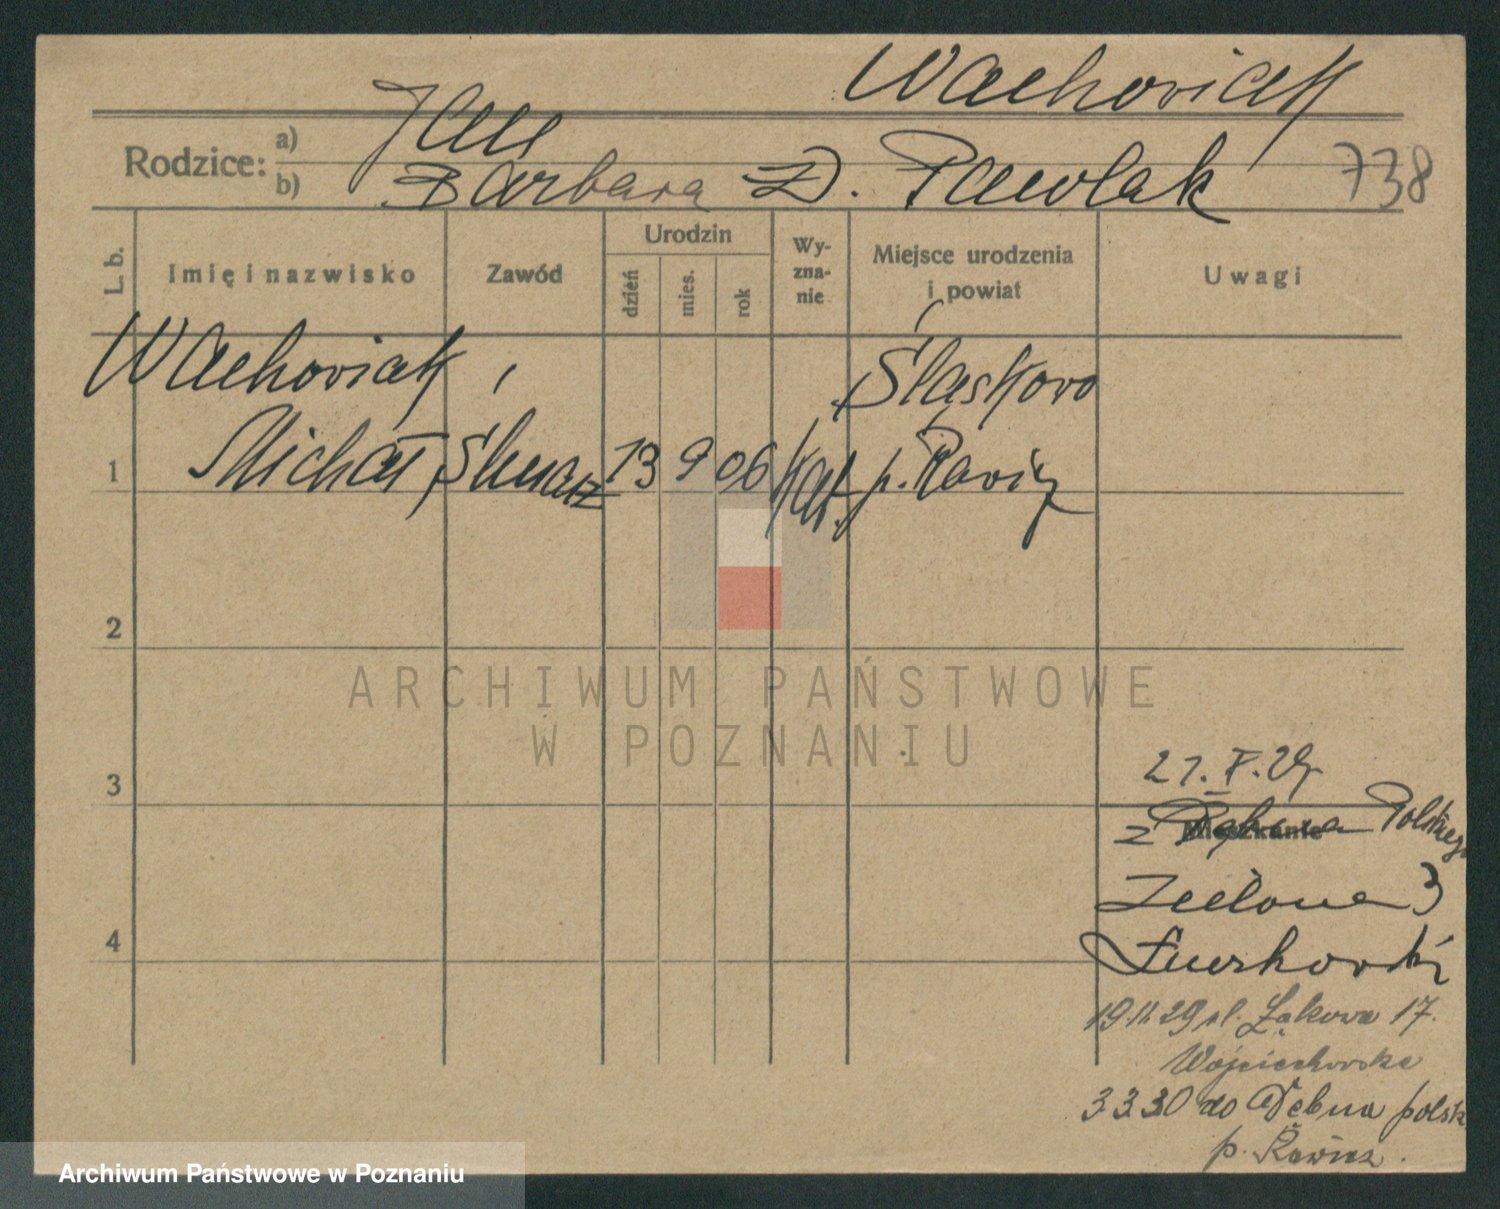 Wachowiak
Rodzice: a) Jan
b) Barbara D. Pawlak 738
L. b.
Imię i nazwisko
Zawód
Urodzin
dzień
mies.
rok
Wy-
zna-
nie
Miejsce urodzenia
i powiat
Uwagi
Wachowiak,
Michał
ślusarz
13 9 06
kat.
Śląskowo
p. Rawicz
1
2
3
4
ARCHIWUM PAŃSTWOWE
W POZNANIU
21. X. 29
Mieszkanie
z Polskiego
Zielona 3
Żurkowski
19.11.29 ul. Łąkowa 17.
Wojciechowska
3.3.30 do Dębna polsk
p. Rawicz.
Archiwum Państwowe w Poznaniu